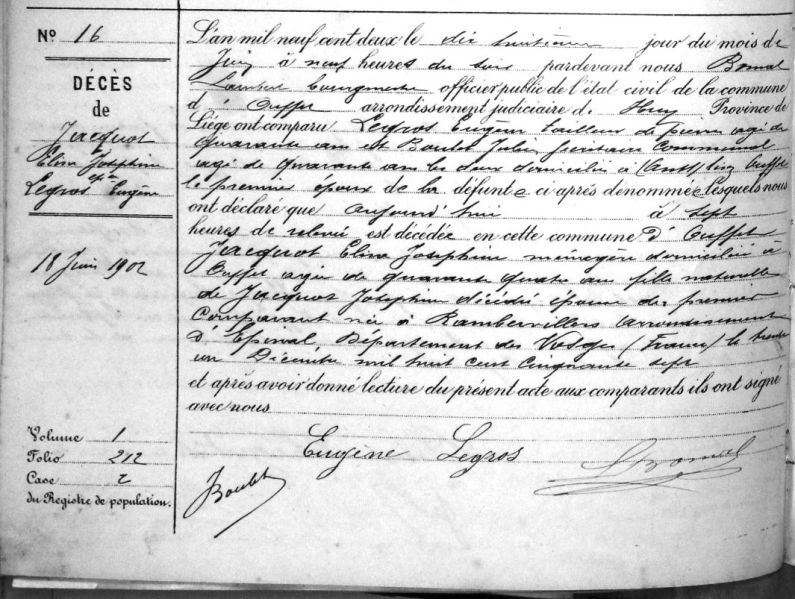 Nº 16
DÉCÈS
de
Jacquot
Elise Joséphine
épse
Legros Eugène
18 Juin 1902
Volume 1
Folio 212
Case 2
du Registre de population.
L'an mil neuf cent deux le dix huitième jour du mois de
Juin à neuf heures du soir pardevant nous Bomal
Lambert bourgmestre officier public de l'état civil de la commune
d'Ouffet arrondissement judiciaire d. Huy Province de
Liége ont comparu Legros Eugène tailleur de pierre agé de
quarante ans et Boulet Jules secrétaire communal
agé de quarante ans les deux domiciliés à Ouffet
le premier époux de la défunte ci après dénommée lesquels nous
ont déclaré que aujourd'hui à sept
heures de relevée est décédée en cette commune d'Ouffet
Jacquot Elise Joséphine ménagère domiciliée à
Ouffet agée de quarante quatre ans fille naturelle
de Jacquot Joséphine décédée épouse du premier
comparant née à Rambervillers arrondissement
d'Epinal, Département des Vosges (France) le trente
un Décembre mil huit cent cinquante sept
et après avoir donné lecture du présent acte aux comparants ils ont signé
avec nous
Eugène Legros
LBomal
JBoulet